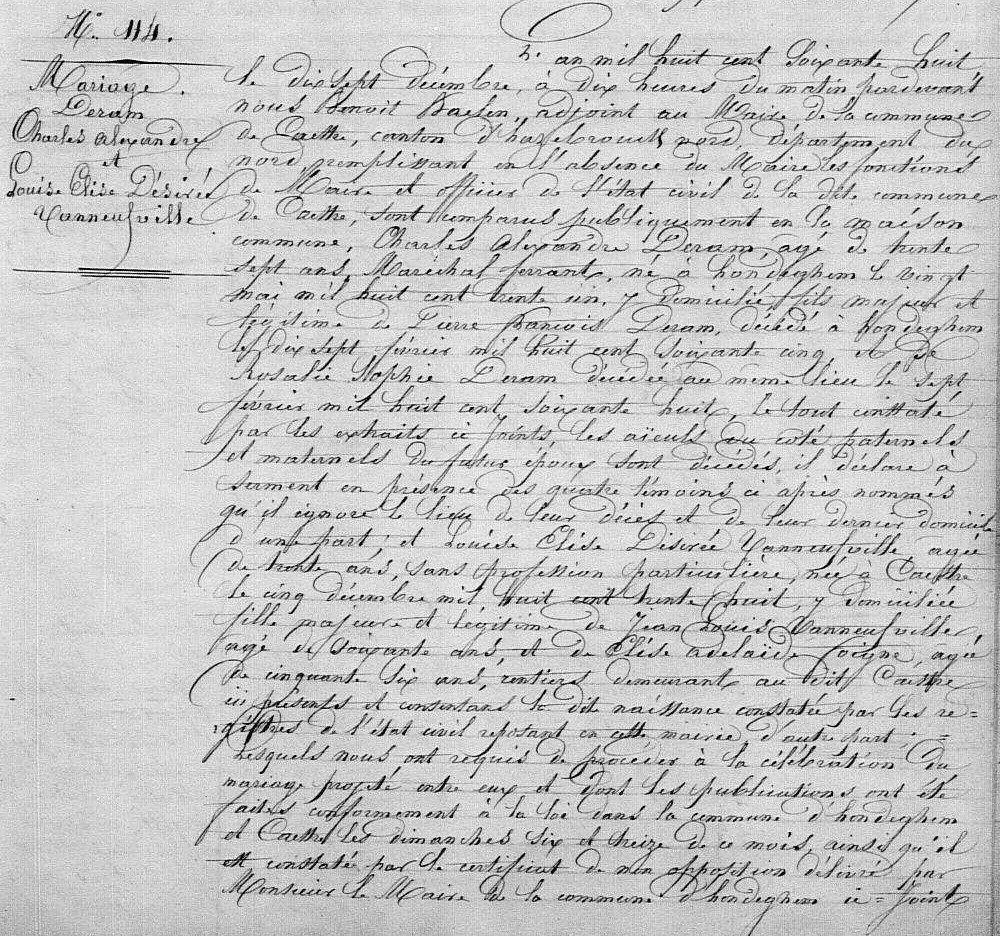 N° 44.
Mariage
Deram
Charles Alexandre
et
Louise Elise Désirée
Vanneufville
L'an mil huit cent soixante huit
le dix sept décembre, à dix heures du matin pardevant
nous Benoit Baelen, adjoint au Maire de la commune
de Caestre, canton d'hazebrouck nord, département du
nord remplissant en l'absence du Maire les fonctions
de Maire et officier de l'état civil de la dite commune
de Caestre, sont comparus publiquement en la maison
commune, Charles Alexandre Deram, agé de trente
sept ans, Maréchal ferrant, né à hondeghem le vingt
mai mil huit cent trente un, y domicilié, fils majeur et
légitime de Pierre francois Deram, décédé à hondeghem
le dix sept février mil huit cent soixante cinq, et de
Rosalie Sophie Deram décédée au même lieu le sept
février mil huit cent soixante huit, le tout constaté
par les extraits ci joints, les aïeuls du coté paternels
et maternels du futur époux sont décédés, il déclare à
serment en présence des quatre témoins ci après nommés
qu'il ignore le lieu de leur décès et de leur dernier domicile
d'une part; et Louise Elise Désirée Vanneufville, agée
de trente ans, sans profession particulière, née à Caestre
le cinq décembre mil huit cent trente huit, y domiciliée
fille majeure et légitime de Jean Louis Vanneufville,
agé de soixante ans, et de Elise adelaïde Coigne, agée
de cinquante six ans, rentiers demeurant au dit Caestre
ici présents et consentans la dite naissance constatée par les re=
gistres de l'état civil reposant en cette mairie d'autre part; =
Lesquels nous ont requis de procéder à la célébration du
mariage projeté entre eux et dont les publications ont été
faites conformement à la loi dans la commune d'hondeghem
et Caestre les dimanches six et treize de ce mois, ainsi qu'il
est constaté par le certificat de non opposition délivré par
Monsieur le Maire de la commune d'hondeghem ci = Joint